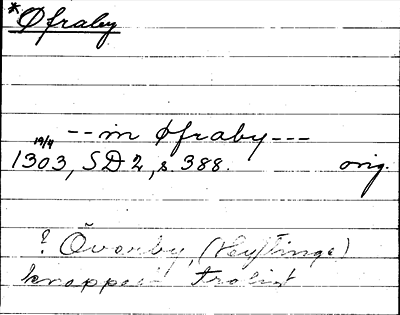 *Øfraby
--in øfraby---
19/4
1303, SD 2, s. 388. orig.
? Överby, (Hyltinge)
knappast troligt